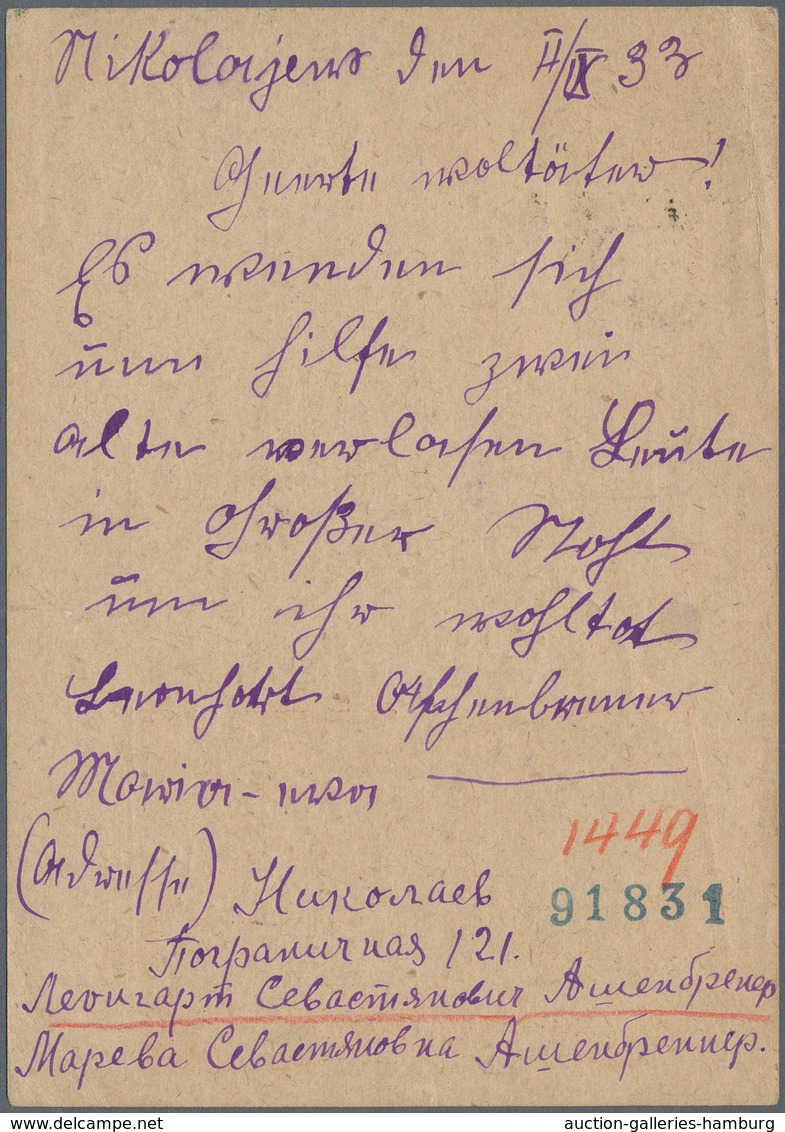 Nikolajew den II/IX 33
Geerte woltäter!
Es wenden sich
um hilfe zwei
alte verlasen Leute
in Großer Noht
um ihr wohltat
Leonhart Aschenbrenner
Maria-
(Adresse) Николаев
Пограничная 121.
Леонгарт Севастянович Ашенбренер
Марева Севастяновна Ашенбреннер.
1449
91831
auction-galleries-hamburg